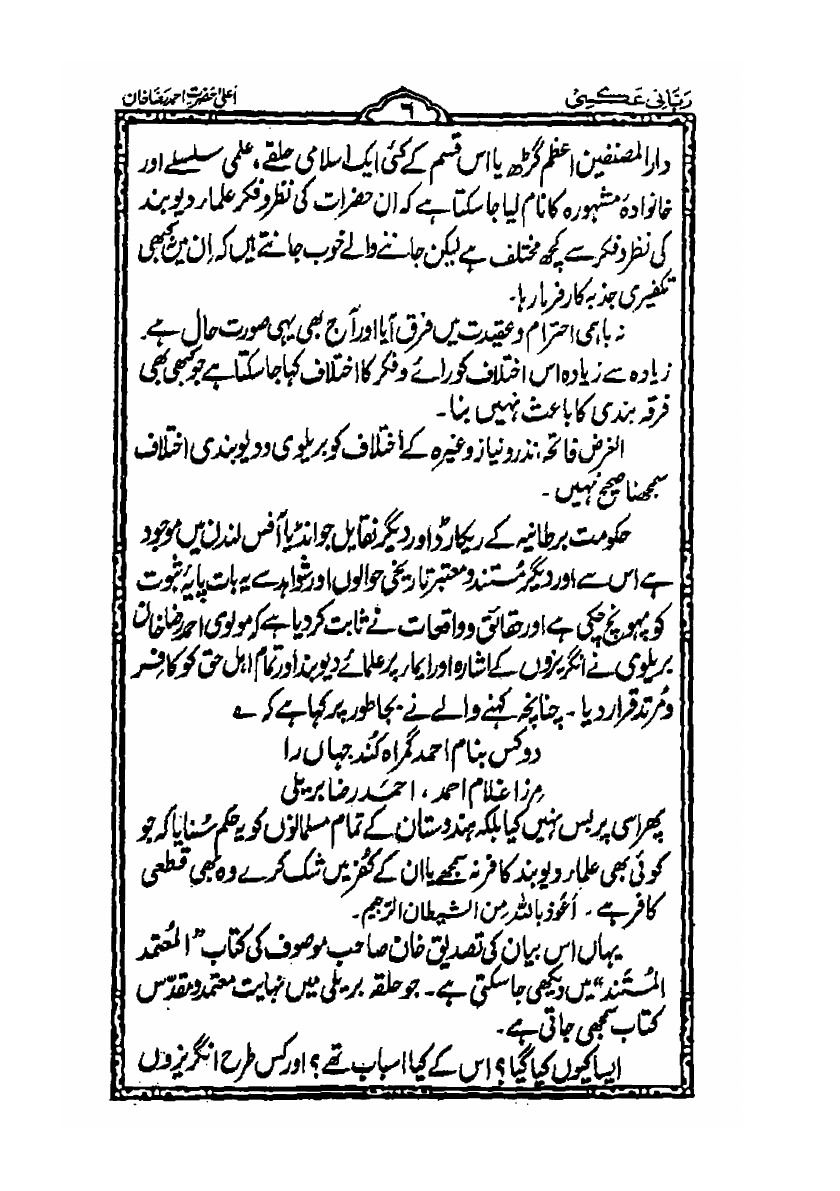 ربّانی عکسی
٦
اعلیٰ حضرت احمد رضا خان
دارالمصنفین اعظم گڑھ یا اس قسم کے کئی ایک اسلامی حلقے، علمی سلسلے اور
خانوادۂ مشہورہ کا نام لیا جا سکتا ہے کہ ان حضرات کی نظر و فکر علماء دیوبند
کی نظر و فکر سے کچھ مختلف ہے لیکن جاننے والے خوب جانتے ہیں کہ ان میں کبھی
تکفیری جذبہ کار فرما رہا۔
نہ باہمی احترام و عقیدت میں فرق آیا اور آج بھی یہی صورت حال ہے۔
زیادہ سے زیادہ اس اختلاف کو رائے و فکر کا اختلاف کہا جا سکتا ہے جو کبھی بھی
فرقہ بندی کا باعث نہیں بنا۔
الغرض فاتحہ نذر و نیاز وغیرہ کے اختلاف کو بریلوی و دیوبندی اختلاف
سمجھنا صحیح نہیں۔
حکومت برطانیہ کے ریکارڈ اور دیگر نقایل جو انڈیا آفس لندن میں موجود
ہے اس سے اور دیگر مستند و معتبر تاریخی حوالوں اور شواہد سے یہ بات پایۂ ثبوت
کو پہونچ چکی ہے اور حقائق و واقعات نے ثابت کر دیا ہے کہ مولوی احمد رضا خان
بریلوی نے انگریزوں کے اشارہ اور ایماء پر علمائے دیوبند اور تمام اہل حق کو کافر
و مُرتد قرار دیا۔ چنانچہ کہنے والے نے بجا طور پر کہا ہے کہ ؎
دو کس بنام احمد گمراہ کُند جہاں را
مرزا غلام احمد، احمد رضا بریلی
پھر اسی پر بس نہیں کیا بلکہ ہندوستان کے تمام مسلمانوں کو یہ حکم سُنایا کہ جو
کوئی بھی علماء دیوبند کا فر نہ سمجھے یا ان کے کُفر میں شک کرے وہ بھی قطعی
کافر ہے۔ اَعُوذ باللہ مِن الشیطان الرّجیم۔
یہاں اس بیان کی تصدیق خان صاحب موصوف کی کتاب "المُعتمد
المُستند" میں دیکھی جا سکتی ہے۔ جو حلقہ بریلی میں نہایت معتمد و مقدّس
کتاب سمجھی جاتی ہے۔
ایسا کیوں کیا گیا؟ اس کے کیا اسباب تھے؟ اور کس طرح انگریزوں